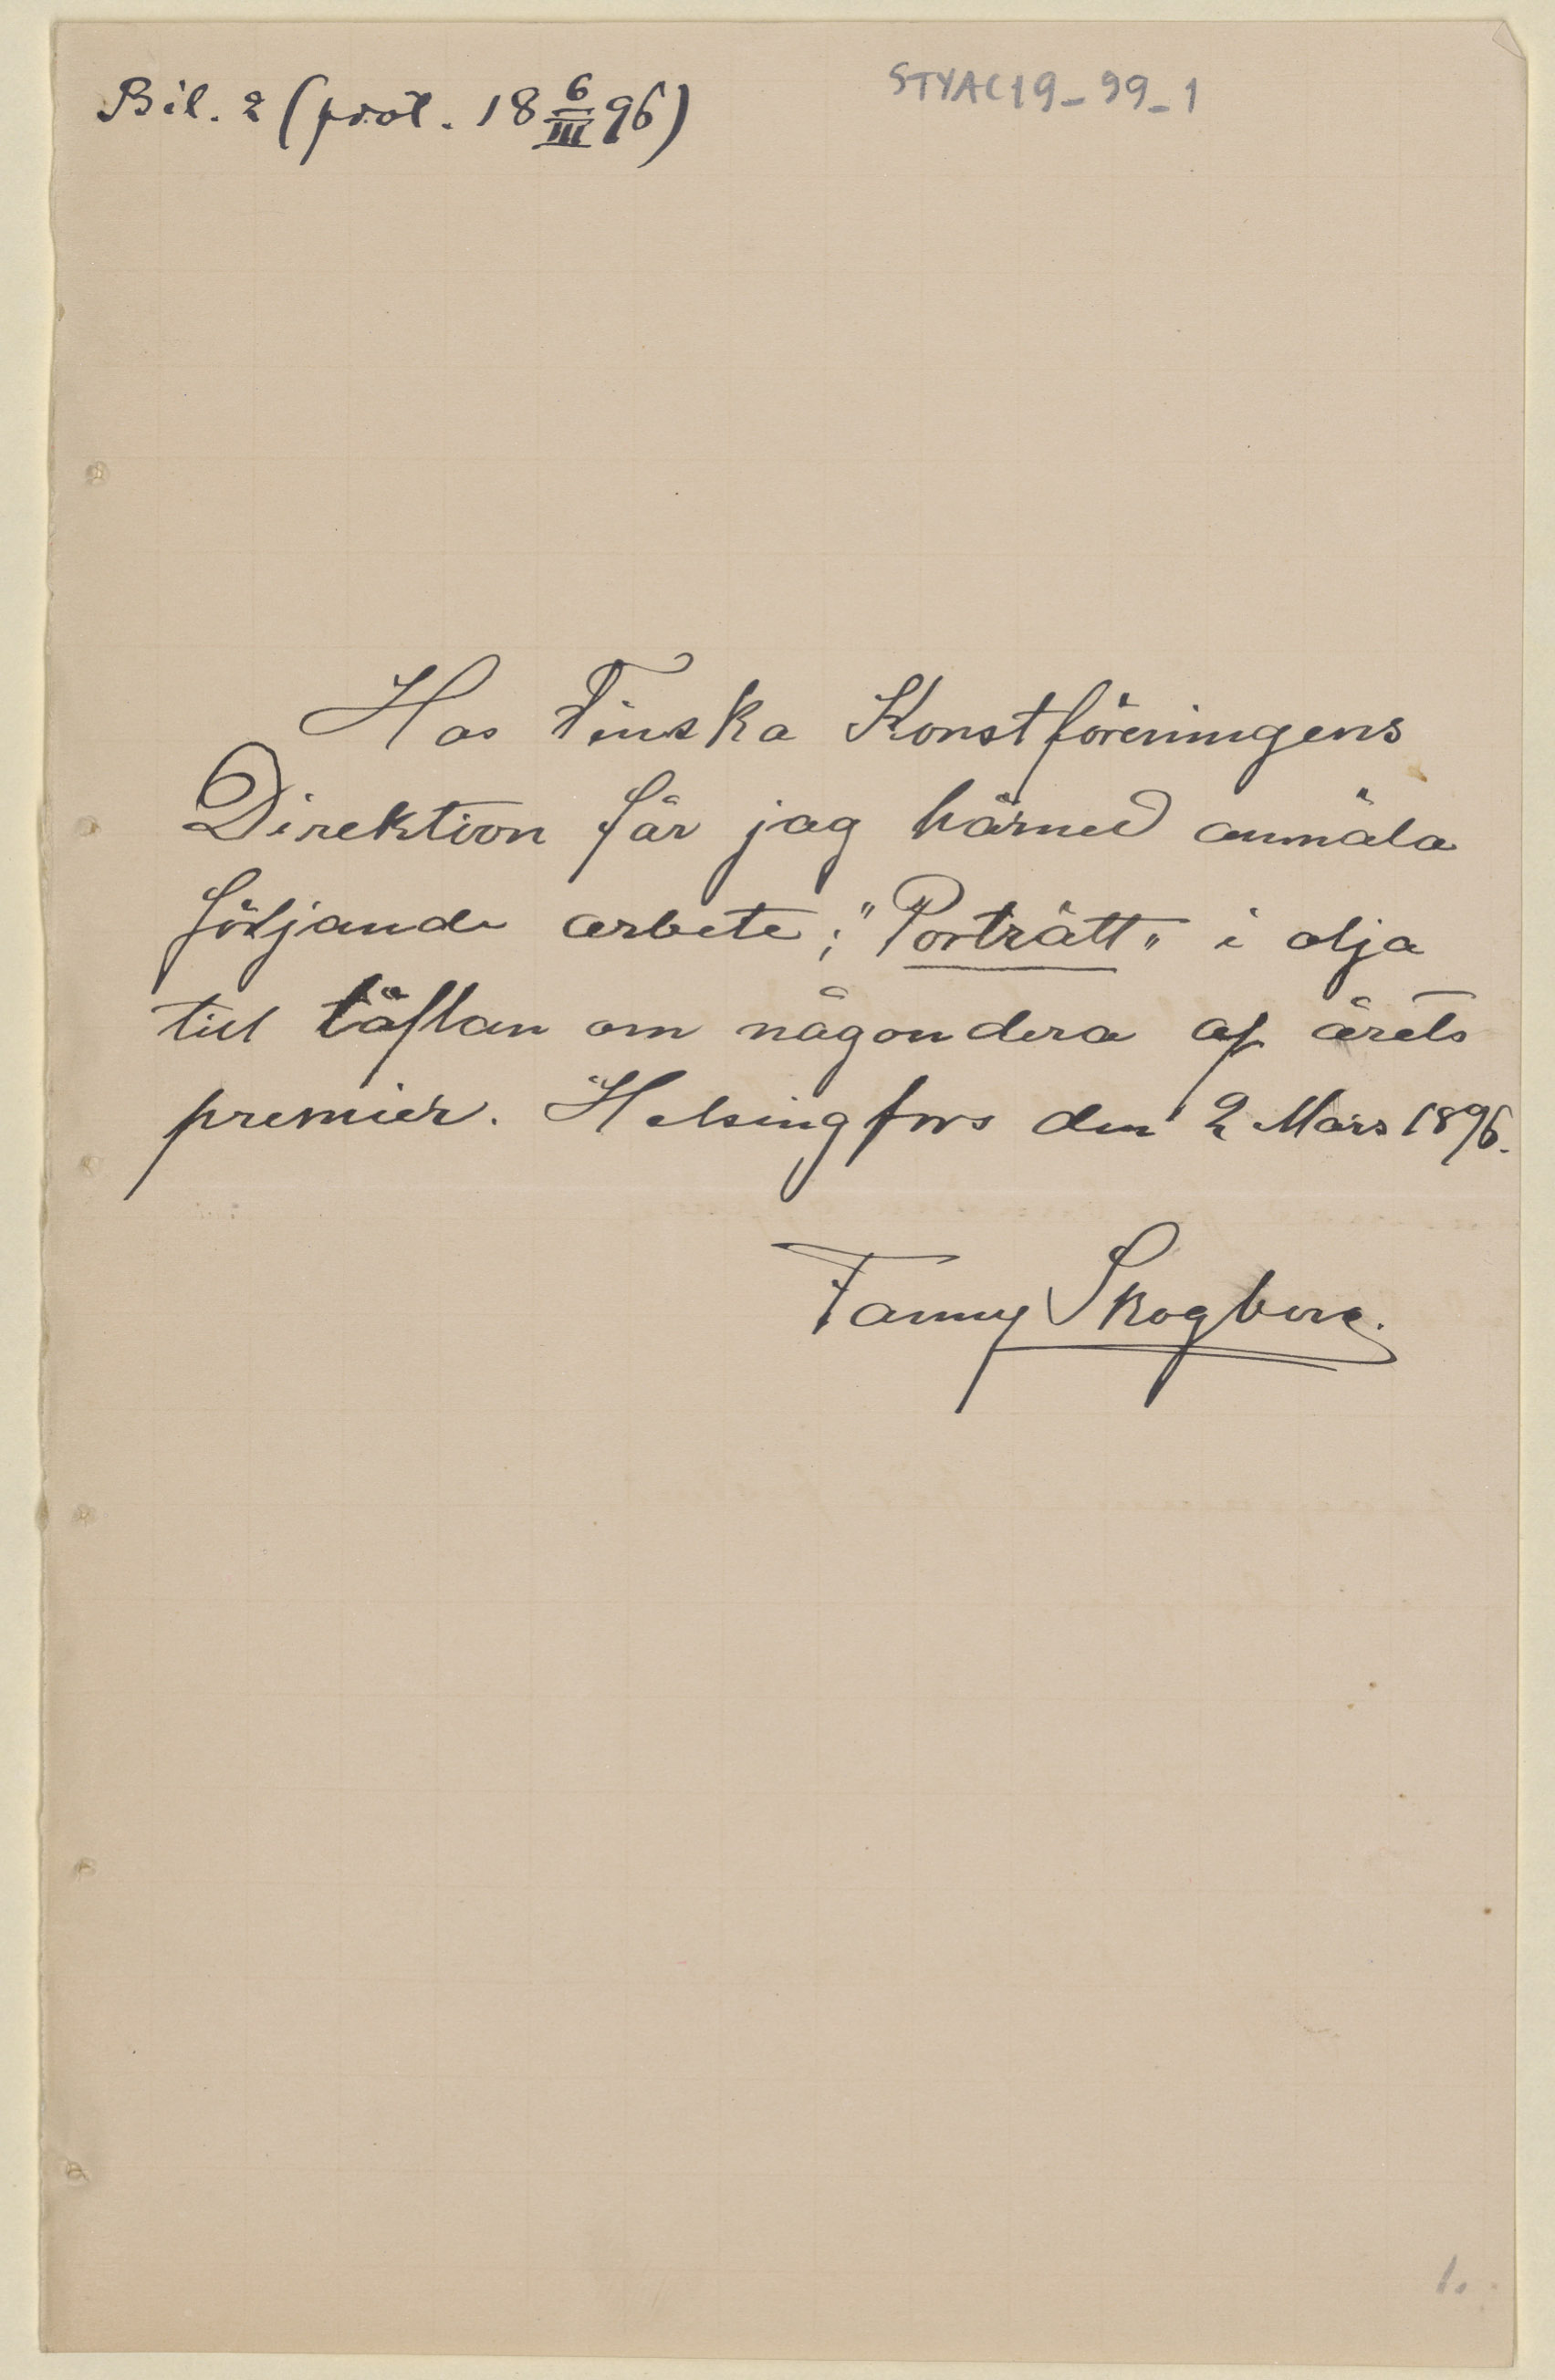 Bil. 2 (prot. 18 6/III 96)
STYAC19_99_1
Hos Finska Konstföreningens
Direktion får jag härmed anmäla
följande arbete; "Porträtt" i olja
till täflan om någondera af årets
premier. Helsingfors den 2 Mars 1896.
Fanny Skogberg.
1.